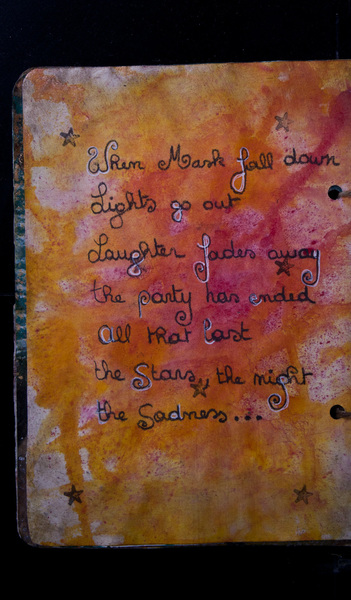 When Mask fall down
Lights go out
Laughter fades away
the party has ended
All that last
the Stars, the night
the Sadness...